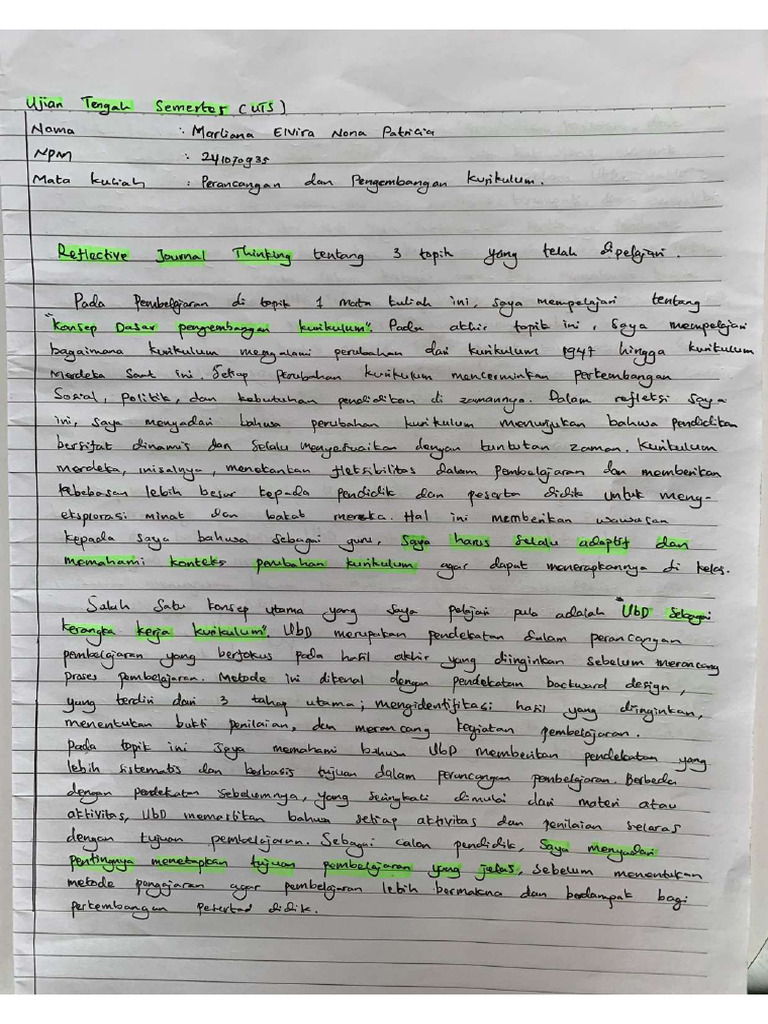 Ujian Tengah Semester (UTS)
Nama : Marliana Elvira Nona Patricia
NPM : 241070935
Mata kuliah : Perancangan dan Pengembangan kurikulum.
Reflective Journal Thinking tentang 3 topik yang telah dipelajari.
Pada Pembelajaran di topik 1 mata kuliah ini, saya mempelajari tentang
"Konsep Dasar pengembangan kurikulum". Pada akhir topik ini, saya mempelajari
bagaimana kurikulum mengalami perubahan dari kurikulum 1947 hingga kurikulum
Merdeka saat ini. Setiap perubahan kurikulum mencerminkan perkembangan
Sosial, politik, dan kebutuhan pendidikan di zamannya. Dalam refleksi saya
ini, saya menyadari bahwa perubahan kurikulum menunjukan bahwa pendidikan
bersifat dinamis dan selalu menyesuaikan dengan tuntutan zaman. Kurikulum
merdeka, misalnya, menekankan fleksibilitas dalam pembelajaran dan memberikan
kebebasan lebih besar kepada pendidik dan peserta didik untuk meng-
eksplorasi minat dan bakat mereka. Hal ini memberikan wawasan
kepada saya bahwa sebagai guru, saya harus selalu adaptif dan
memahami konteks perubahan kurikulum agar dapat menerapkannya di kelas.
Salah Satu konsep utama yang saya pelajari pula adalah "UbD sebagai
kerangka kerja kurikulum". UbD merupakan pendekatan dalam perancangan
pembelajaran yang berfokus pada hasil akhir yang diinginkan sebelum merancang
proses pembelajaran. Metode ini dikenal dengan pendekatan backward design,
yang terdiri dari 3 tahap utama; mengidentifikasi hasil yang diinginkan,
menentukan bukti penilaian, dan merancang kegiatan pembelajaran.
Pada topik ini saya memahami bahwa UbD memberikan pendekatan yang
lebih sistematis dan berbasis tujuan dalam perancangan pembelajaran. Berbeda
dengan pendekatan sebelumnya, yang seringkali dimulai dari materi atau
aktivitas, UbD memastikan bahwa setiap aktivitas dan penilaian selaras
dengan tujuan pembelajaran. Sebagai calon pendidik, Saya menyadari
pentingnya menetapkan tujuan pembelajaran yang jelas, sebelum menentukan
metode pengajaran agar pembelajaran lebih bermakna dan berdampak bagi
perkembangan didik.